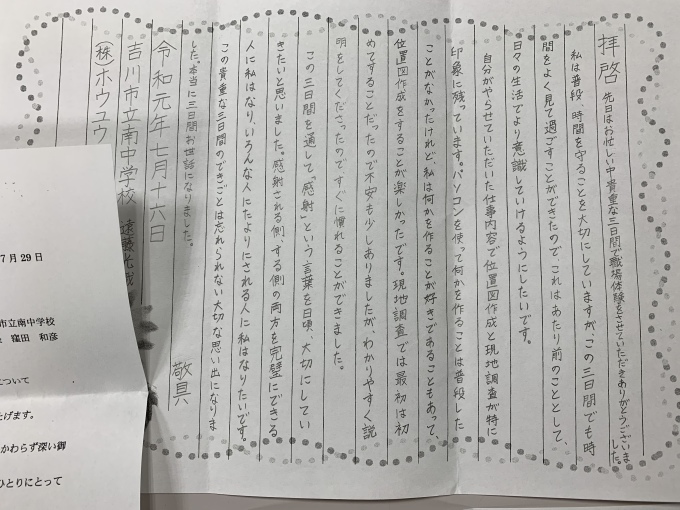 拝啓 先日はお忙しい中貴重な三日間で職場体験をさせていただきありがとうございました。
私は普段、時間を守ることを大切にしていますが、この三日間でも時
間をよく見て過ごすことができたので、これはあたり前のこととして、
日々の生活でより意識していけるようにしたいです。
自分がやらせていただいた仕事内容で位置図作成と現地調査が特に
印象に残っています。パソコンを使って何かを作ることは普段した
ことがなかったけれど、私は何かを作ることが好きであることもあって、
位置図作成をすることが楽しかったです。現地調査では最初は初
めてすることだったので不安も少しありましたが、わかりやすく説
明をしてくださったのですぐに慣れることができました。
この三日間を通して「感射」という言葉を日頃、大切にしてい
きたいと思いました。感射される側、する側の両方を完璧にできる
人に私はなり、いろんな人にたよりにされる人に私はなりたいです。
この貴重な三日間のできごとは忘れられない大切な思い出になりま
した。本当に三日間お世話になりました。
敬具
令和元年七月十六日
吉川市立南中学校 遠藤光
(株)ホウユウ
7月29日
市立南中学校
窪田 和彦
について
上げます。
かわらず深い御
ひとりにとって